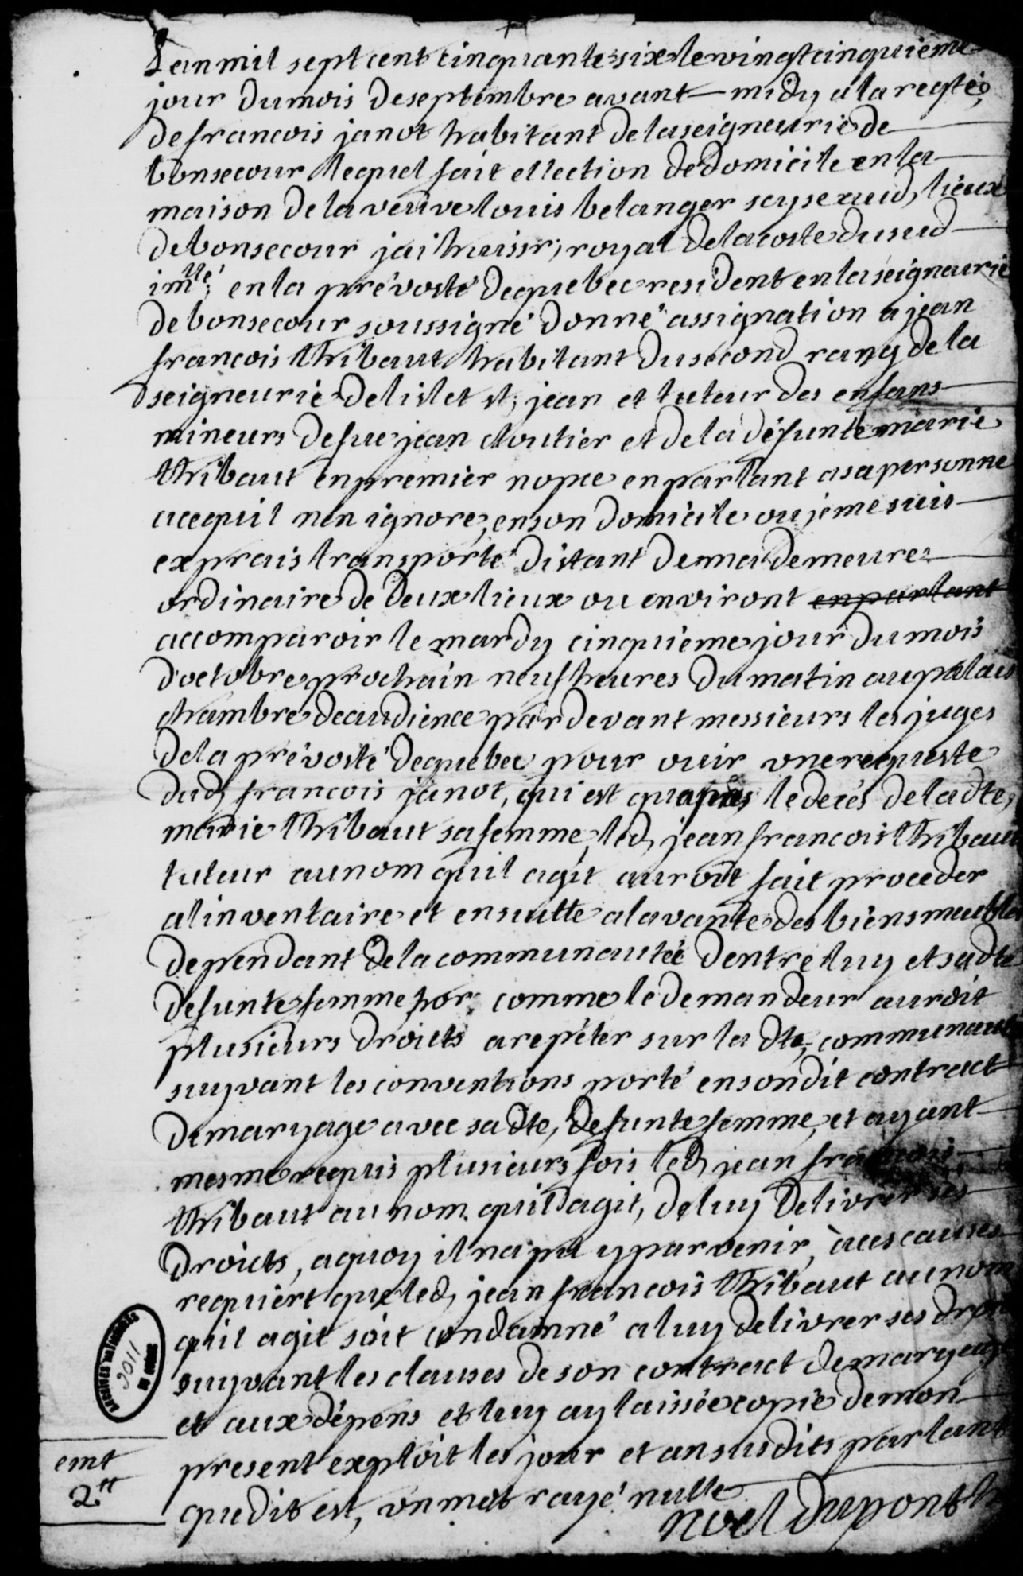 Lan mil sept cent cinquante six le vingt cinquieme
jour du mois de septembre avant midy a la reqte,
de francois janot habitant de la seigneurie de
bonsecour lequel fait ellection de domicile en la
maison de la veuve louis belanger scyse aud, lieux
de bonsecour jai huissr, royal de la coste du sud
imllé, en la prévosté de quebec resident en la seigneurie
de bonsecour soussigné donné assignation a jean
francois thibaut habitant du second rang de la
seigneurie de lislet st, jean et tuteur des enfans
mineurs de fue jean cloutier et de la défunte marie
thibaut en premier nopce en parlant a sa personne
ace quil nen ignore, en son domicile ou je me suis
exprais transporté distant de ma demeure
ordinaire de deux lieux ou environt en parlant
a comparoir le mardy cinquieme jour du mois
doctobre prochain neuf heures du matin au palais
chambre de audience par devant messieurs les juges
de la prévosté de quebec pour ouir une requeste
dud, francois janot, qui est quapres le decés de ladte,
marie thibaut sa femme, led, jean francois thibaut
tuteur au nom quil agit auroit fait proceder
a linventaire et ensuitte a la vante des biens meubles
dependant de la communautée dentre luy et sadte
defunte femme por, comme le demandeur auroit
plusieurs droicts a repéter sur la dte, communauté
suyvant les conventions porté en son dit contract
de maryage avec sa dte, defunte femme, et ayant
mesme requis plusieurs fois led, jean francois
thibaut au nom quil agit, de luy delivrer ses
droicts, a quoy il na pu y parvenir, à ces causes
requiert que led, jean francois thibaut au nom
quil agit soit condamné a luy delivrer ses droits
suyvant les clauses de son contract de maryage
et aux dépens et luy ay laissée copie de mon
present exploit les jour et an susdits parlant
que dit est, un mot rayé nulle
noel dupont
emt
2tt